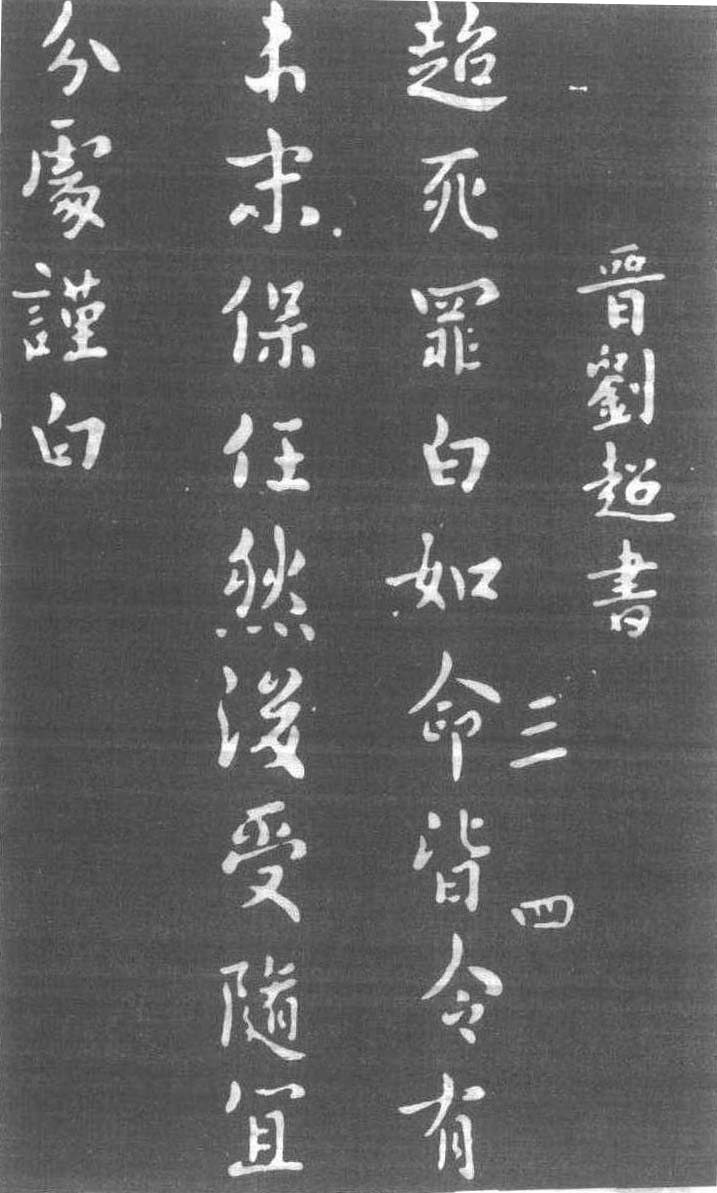 晉劉超書
三 四
超死罪白如命皆令有
保任然後受隨宜
分處謹白